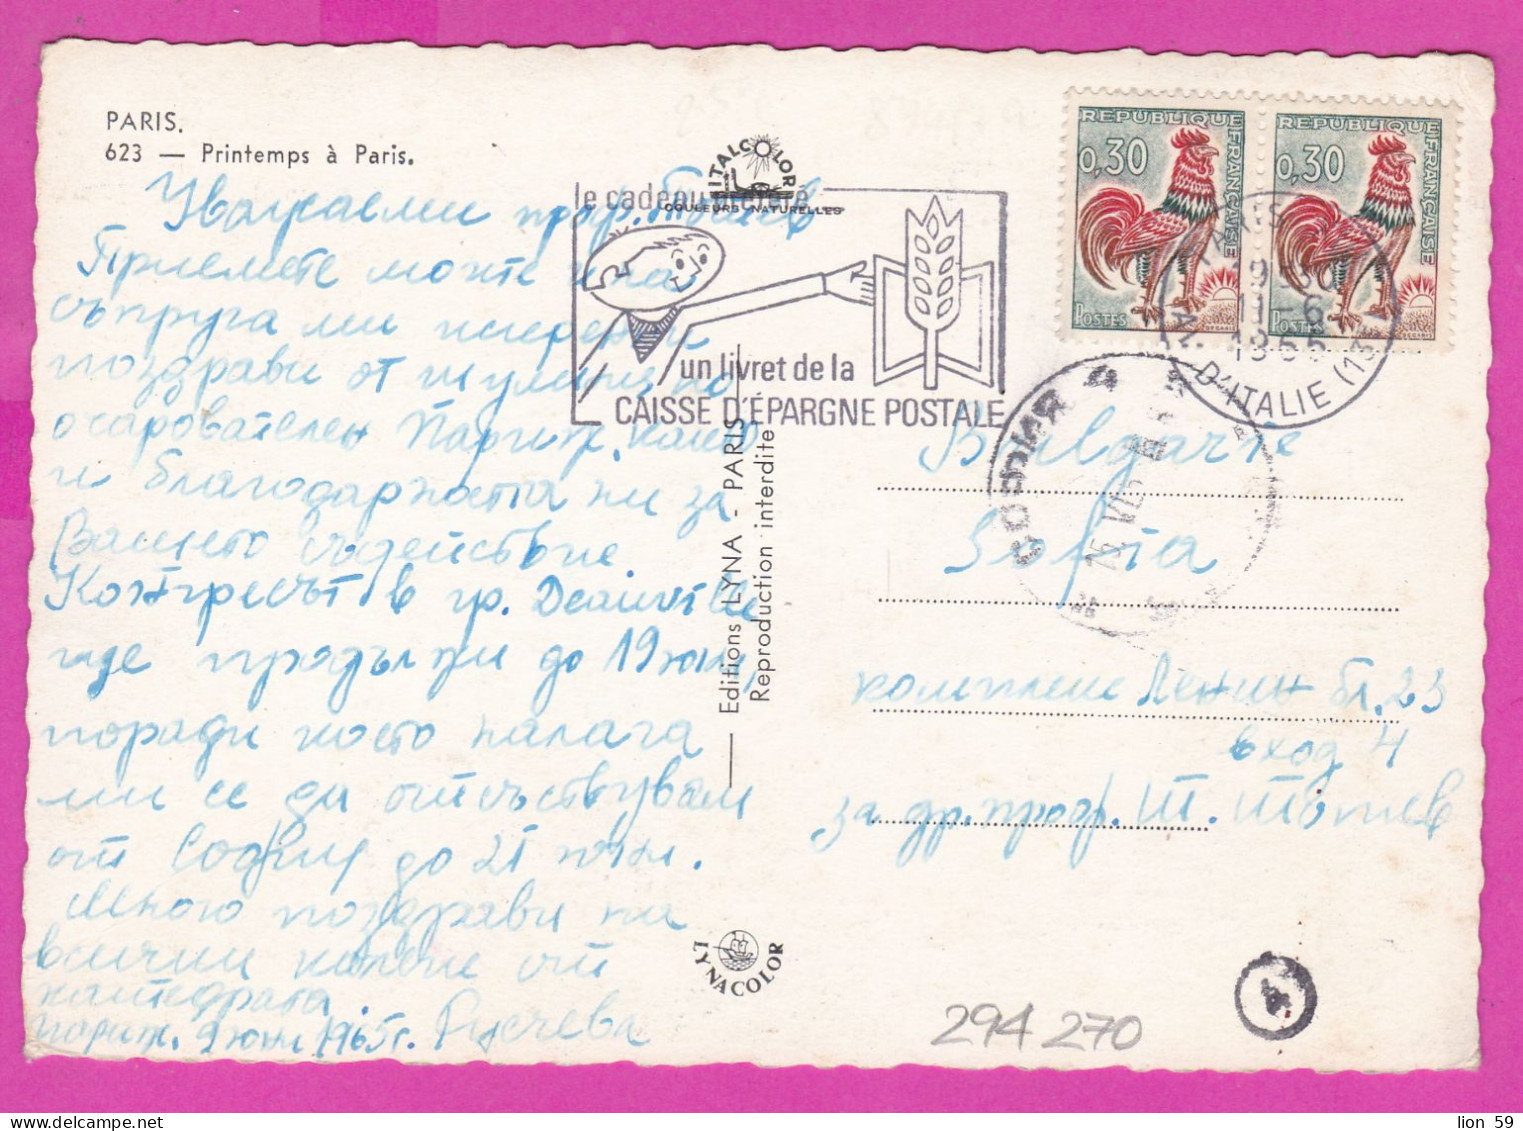 PARIS.
623 — Printemps à Paris.
Уважаеми проф.
Приемете моите и на
съпруга ми искрени
поздрави от шумния, но
очарователен Париж, както
и благодарността ни за
Вашето съдействие
Конгресът в гр. Deauville
ще продължи до 19 юни,
поради което налага
ми се да отсъствувам
от София до 21 юни.
Много поздрави на
всички колеги от
катедрата.
Париж. 9 юни 1965 г. Русчева
ITALCOLOR
COULEURS NATURELLES
le cadeau
un livret de la
CAISSE D'ÉPARGNE POSTALE
Editions LYNA - PARIS
Reproduction interdite
LYNACOLOR
REPUBLIQUE FRANÇAISE
0,30
POSTES
DECARIS
REPUBLIQUE FRANÇAISE
0,30
POSTES
DECARIS
PARIS
11-6
1965
AV. D'ITALIE (13)
СОФИЯ
Bulgarie
Sofia
комплекс Ленин бл. 23
вход 4
за др. проф. Т. Тотев
294 270
lion 59